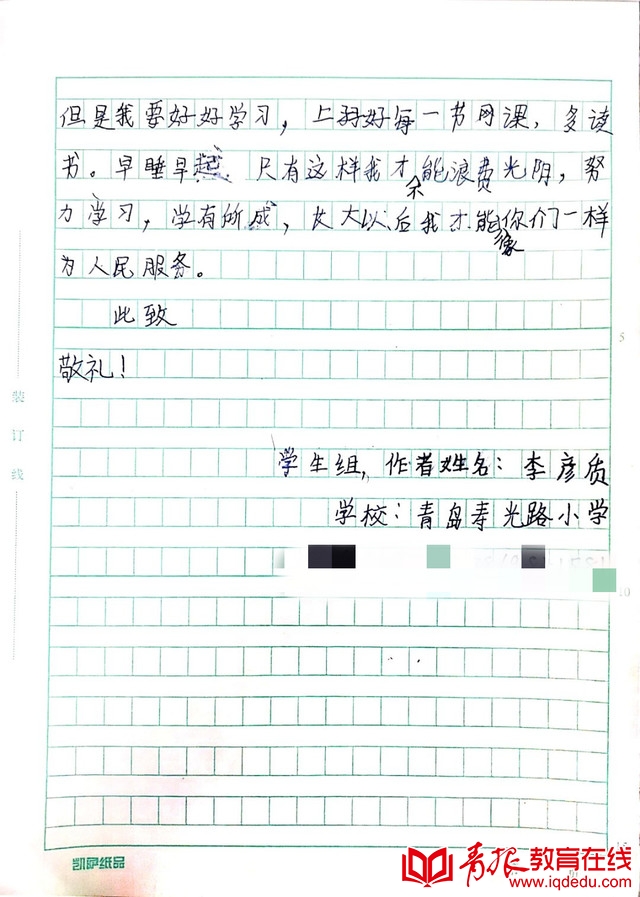 但是我要好好学习，上好每一节网课，多读
书。早睡早起，只有这样我才不能浪费光阴，努
力学习，学有所成，长大以后我才能像你们一样
为人民服务。
此致
敬礼！
5
装
订
线
学生组，作者姓名：李彦质
学校：青岛寿光路小学
10
凯萨纸品
15
青报教育在线
www.iqdedu.com